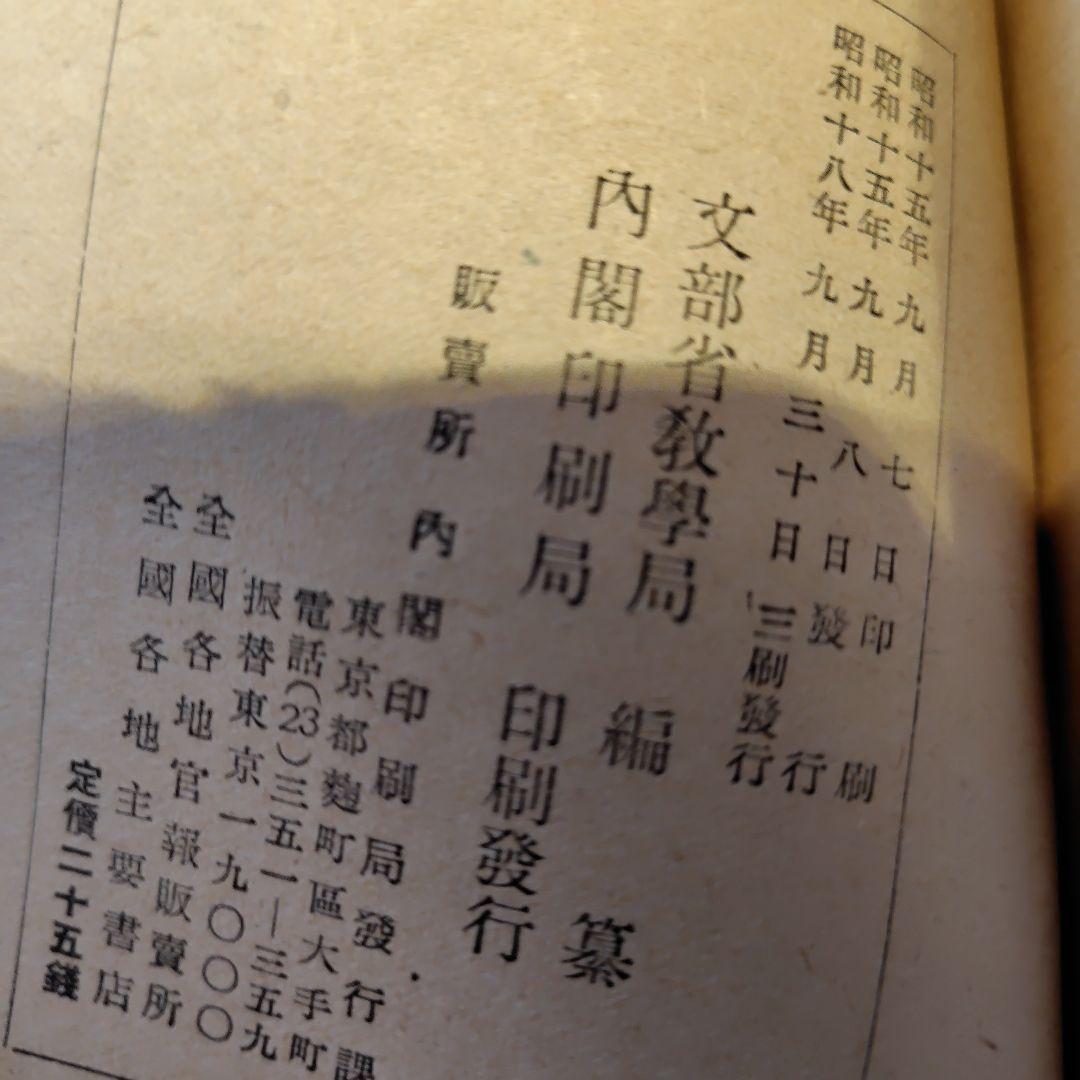 昭和十五年九月七日印刷
昭和十五年九月八日發行
昭和十八年九月三十日三刷發行
文部省敎學局編纂
內閣印刷局印刷發行
販賣所 內閣印刷局發行課
東京都麴町區大手町
電話(23)三五一―三五九
振替東京一九〇〇〇
全國各地官報販賣所
全國各地主要書店
定價二十五錢